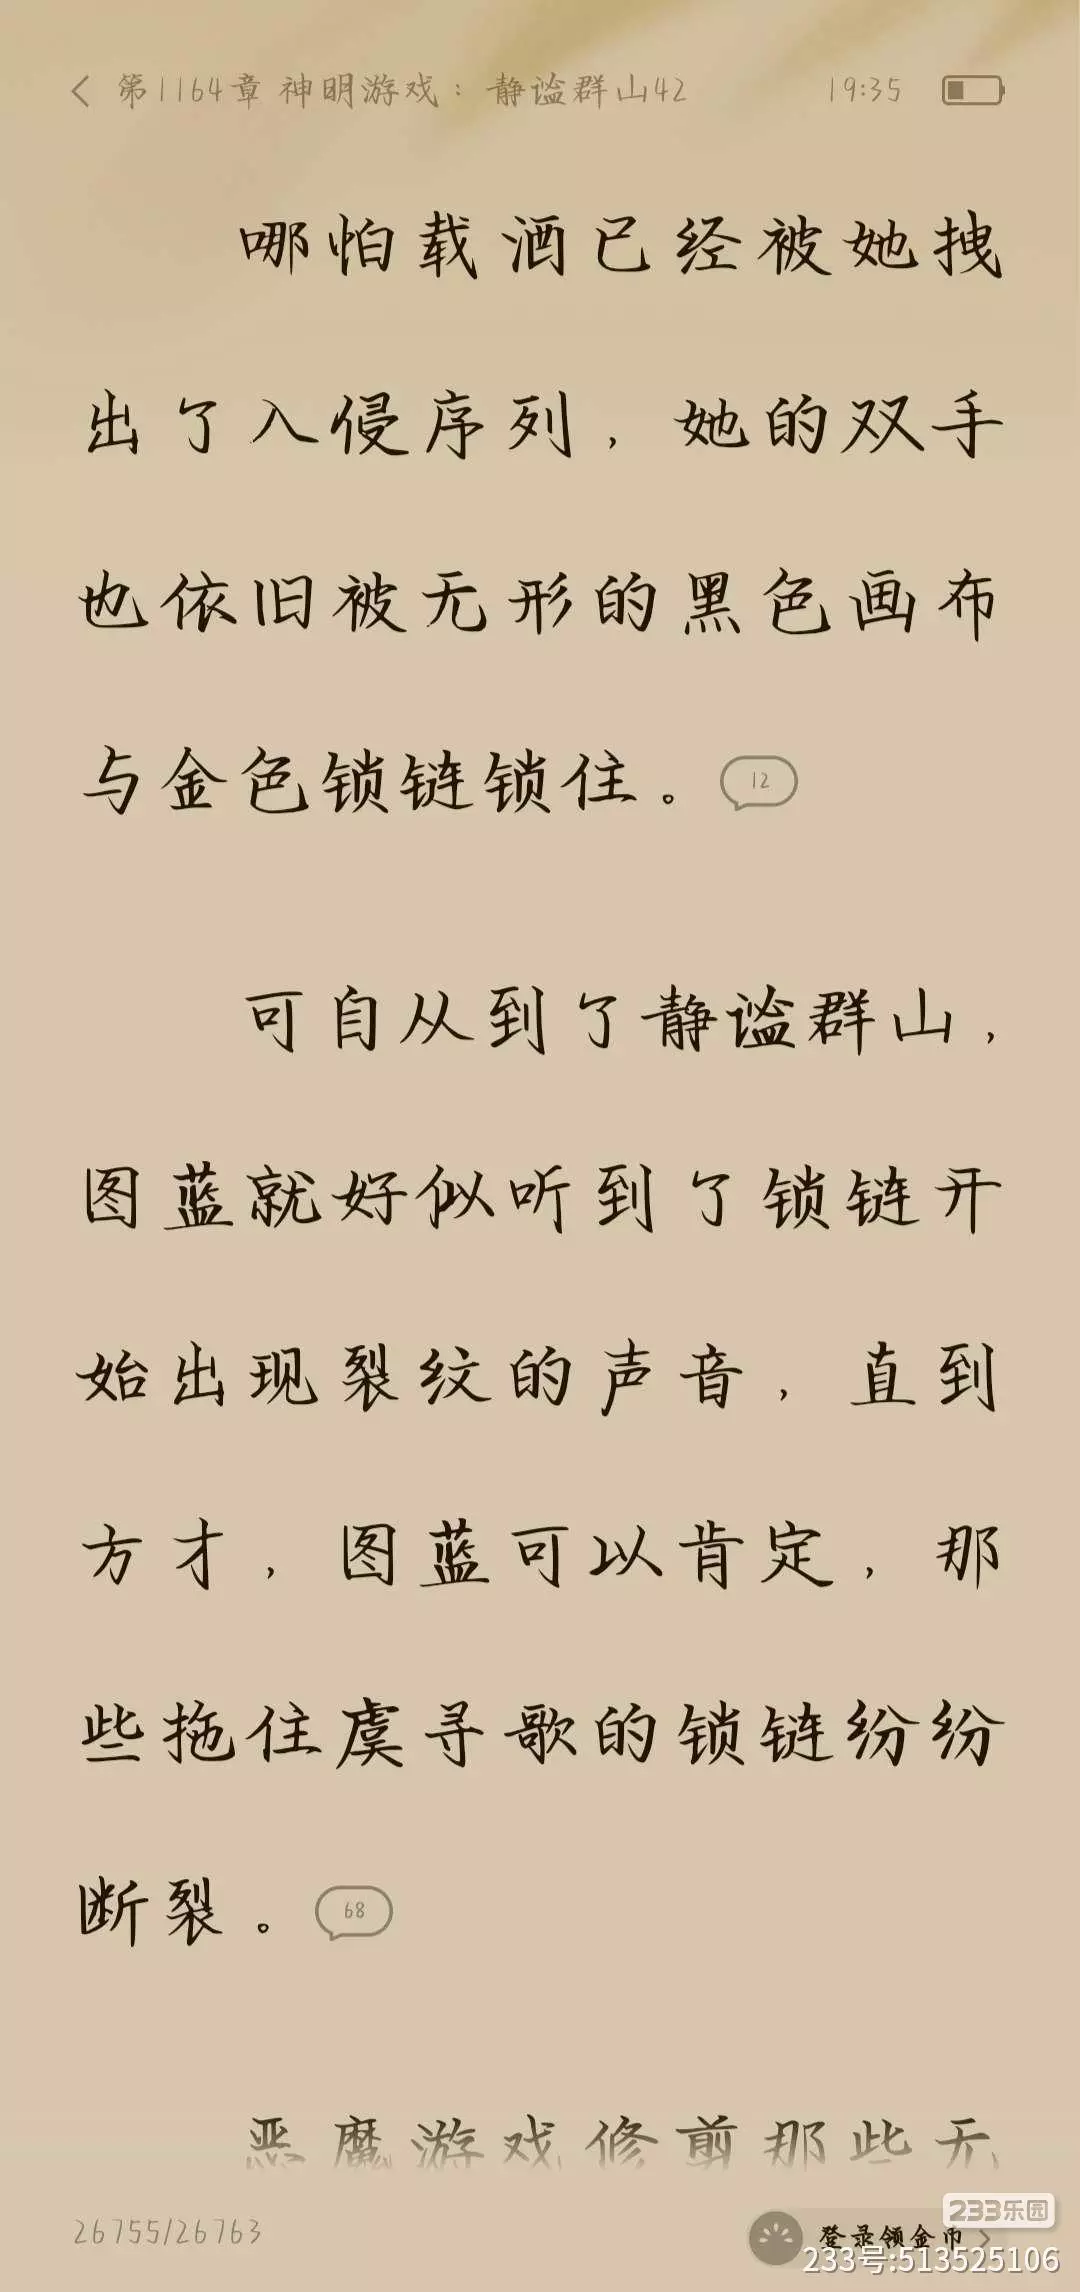 第1164章 神明游戏：静谧群山42 19:35
哪怕载酒已经被她拽
出了入侵序列，她的双手
也依旧被无形的黑色画布
与金色锁链锁住。 12
可自从到了静谧群山，
图蓝就好似听到了锁链开
始出现裂纹的声音，直到
方才，图蓝可以肯定，那
些拖住虞寻歌的锁链纷纷
断裂。 68
恶魔游戏修剪那些无
26755/26763
登录领金币
233乐园
233号:513525106